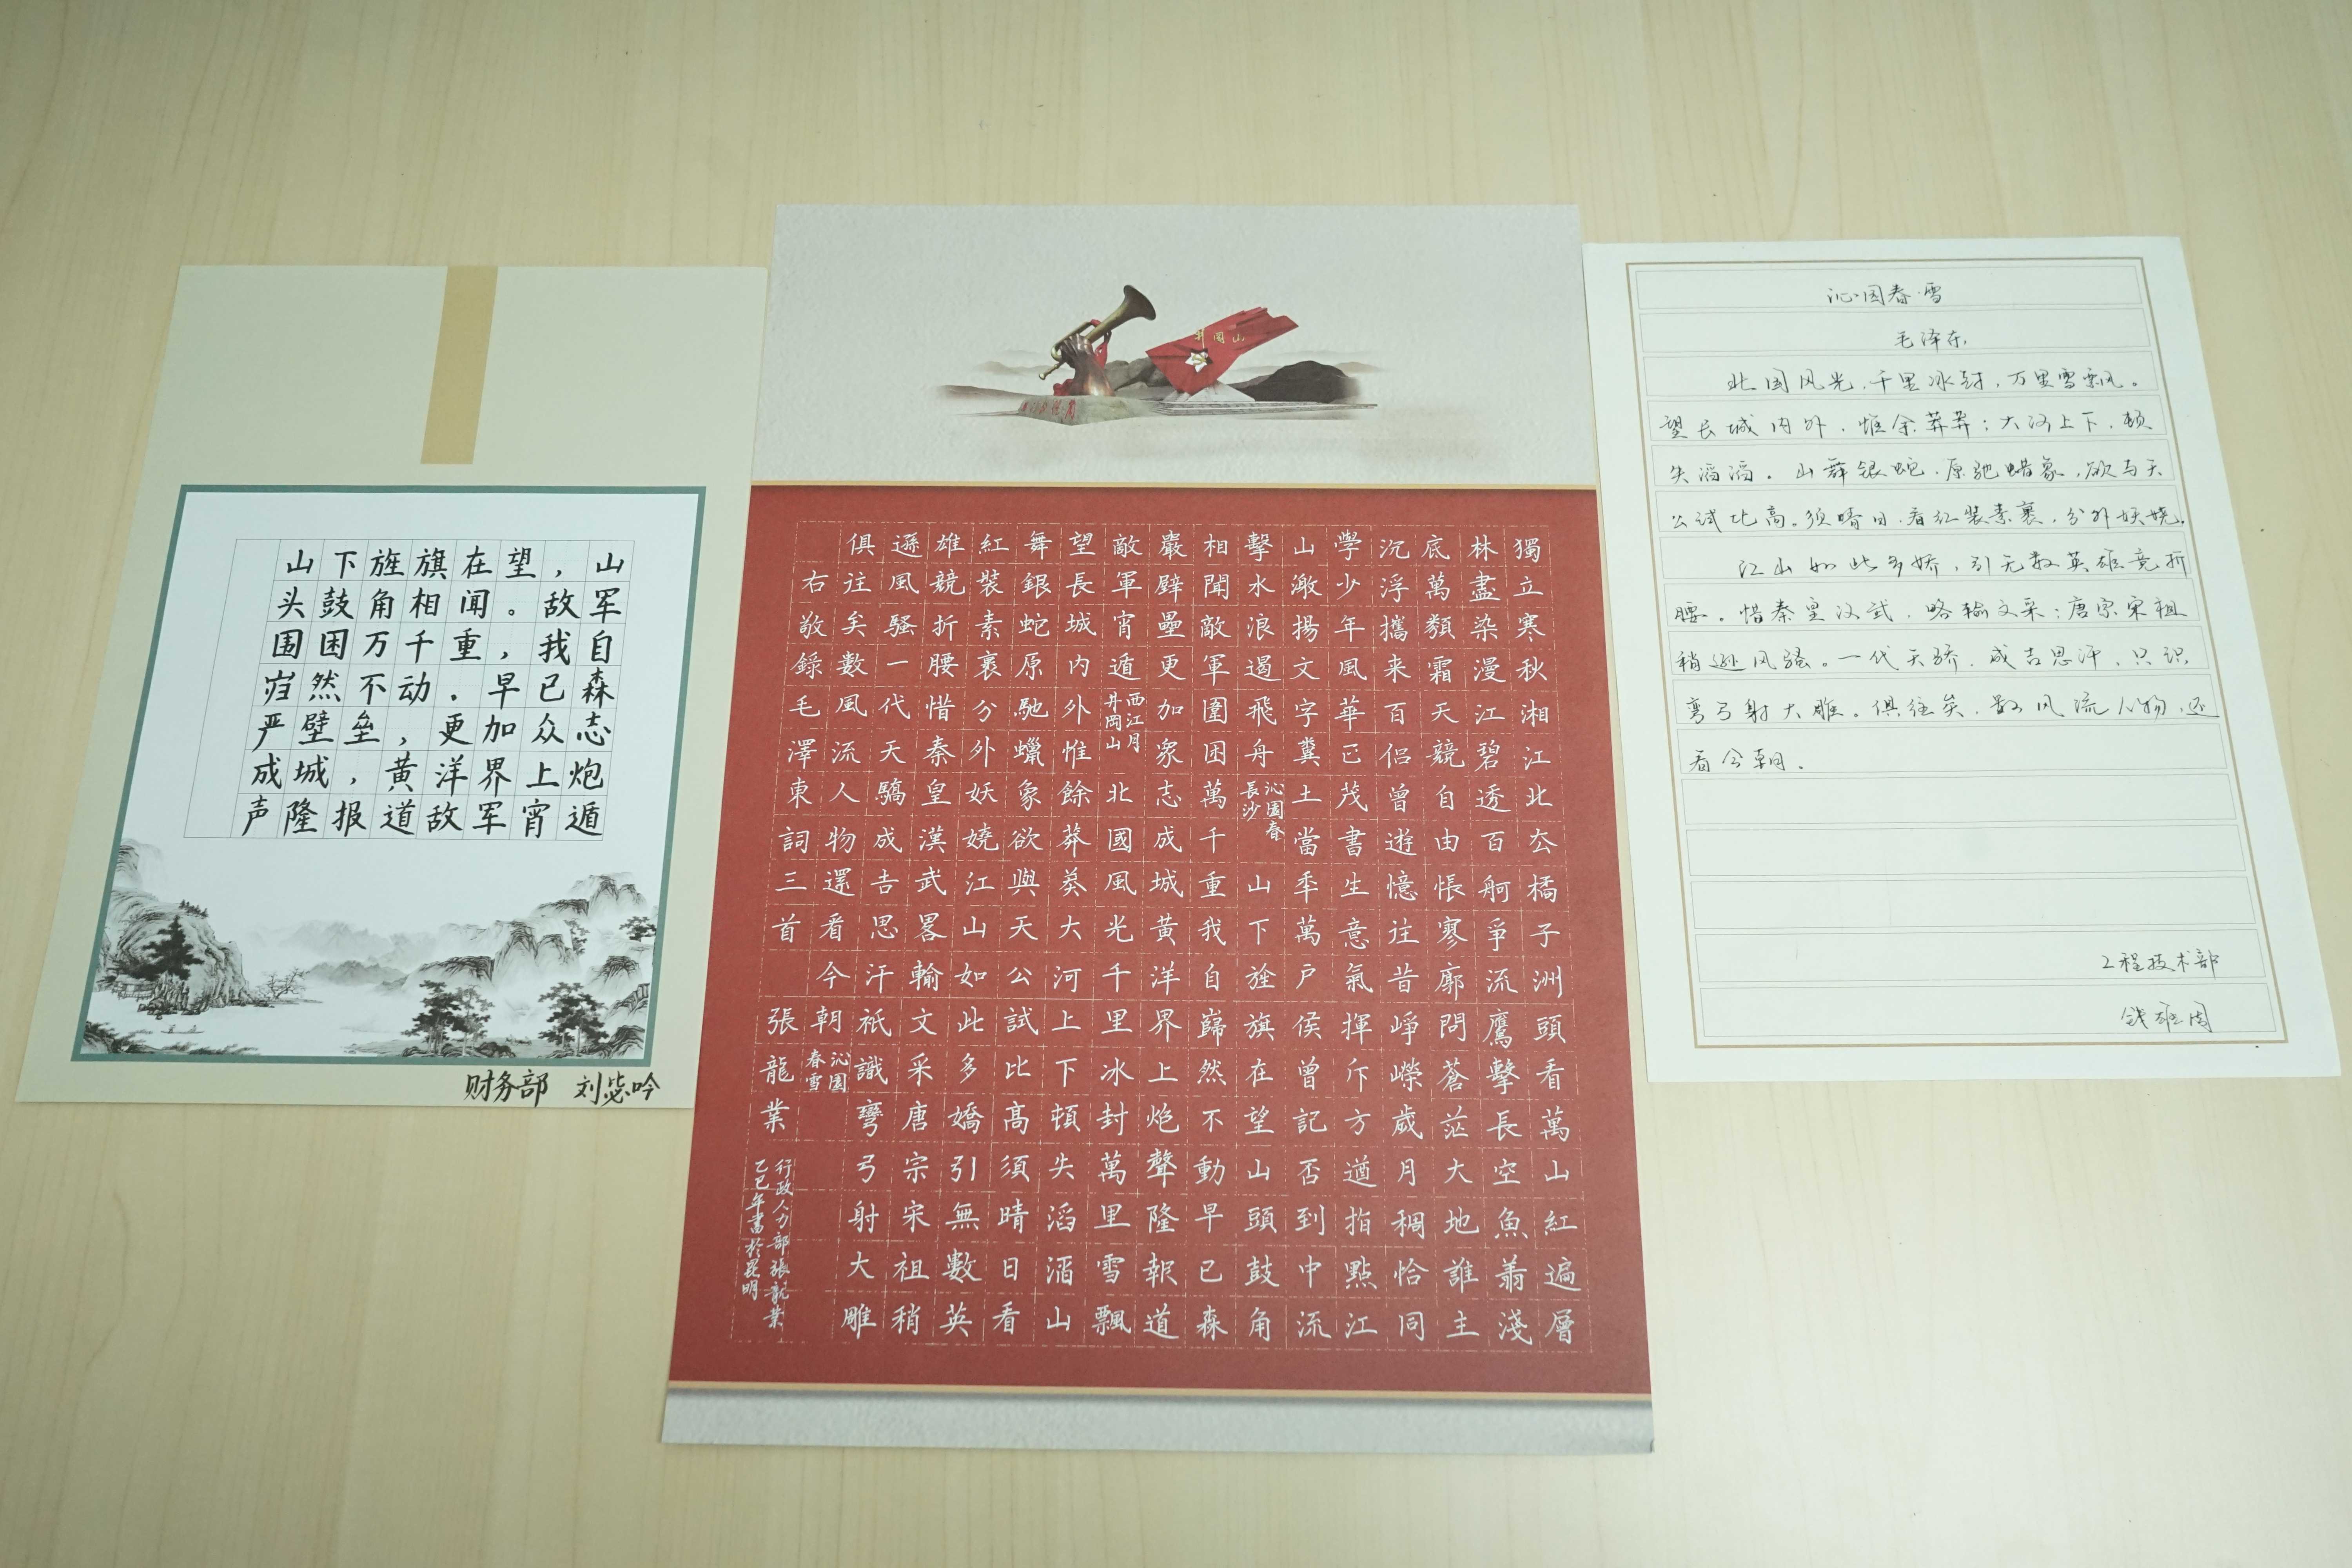 山下旌旗在望，山
头鼓角相闻。敌军
围困万千重，我自
岿然不动。早已森
严壁垒，更加众志
成城，黄洋界上炮
声隆报道敌军宵遁
财务部 刘毖吟
井岡山
獨立寒秋湘江北厺橘子洲頭看萬山紅遍層
林盡染漫江碧透百舸爭流鷹擊長空魚翔淺
底萬類霜天競自由悵寥廓問蒼茫大地誰主
沉浮攜来百侣曾遊憶往昔崢嶸歲月稠恰同
學少年風華正茂書生意氣揮斥方遒指點江
山激揚文字糞土當年萬户侯曾記否到中流
擊水浪遏飛舟 沁園春長沙 山下旌旗在望山頭鼓角
相聞敵軍圍困萬千重我自巋然不動早已森
嚴壁壘更加眾志成城黃洋界上炮聲隆報道
敵軍宵遁 西江月井岡山 北國風光千里冰封萬里雪飄
望長城內外惟餘莽莽大河上下頓失滔滔山
舞銀蛇原馳蠟象欲與天公試比高須晴日看
紅裝素裹分外妖嬈江山如此多嬌引無數英
雄競折腰惜秦皇漢武畧輸文采唐宗宋祖稍
遜風騷一代天驕成吉思汗衹識彎弓射大雕
俱往矣數風流人物還看今朝 沁園春雪
右敬錄毛澤東詞三首 張龍業
行政人力部張龍業
乙巳年書於昆明
沁园春·雪
毛泽东
北国风光，千里冰封，万里雪飘。
望长城内外，惟余莽莽；大河上下，顿
失滔滔。山舞银蛇，原驰蜡象，欲与天
公试比高。须晴日，看红装素裹，分外妖娆。
江山如此多娇，引无数英雄竞折
腰。惜秦皇汉武，略输文采；唐宗宋祖
稍逊风骚。一代天骄，成吉思汗，只识
弯弓射大雕。俱往矣，数风流人物，还
看今朝。
工程技术部